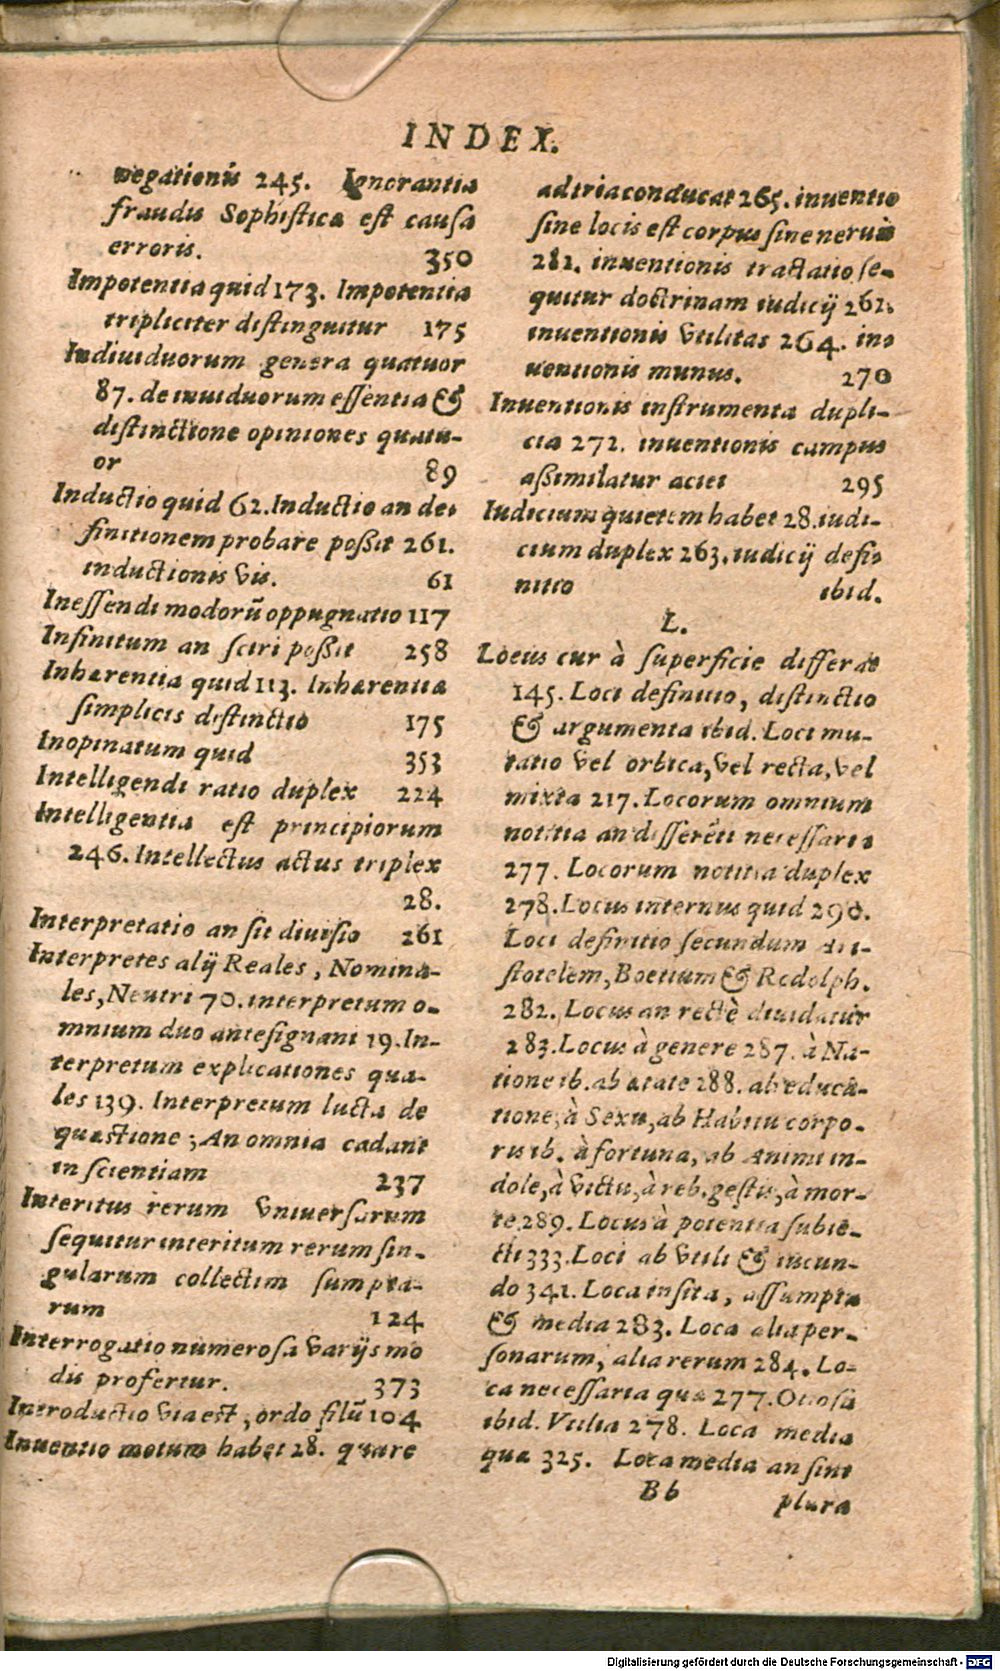 INDEX.
negationis 245. Ignorantia
fraudis Sophistica est causa
erroris. 350
Impotentia quid 173. Impotentia
tripliciter distinguitur 175
Indiuiduorum genera quatuor
87. de inuiduorum essentia &
distinctione opiniones quatu-
or 89
Inductio quid 62. Inductio an de-
finitionem probare poßit 261.
inductionis vis. 61
Inessendi modorū oppugnatio 117
Infinitum an sciri poßit 258
Inhærentia quid 113. Inhærentia
simplicis distinctio 175
Inopinatum quid 353
Intelligendi ratio duplex 224
Intelligentia est principiorum
246. Intellectus actus triplex
28.
Interpretatio an sit diuisio 261
Interpretes alij Reales, Nomina-
les, Neutri 70. interpretum o-
mnium duo antesignani 19. In-
terpretum explicationes qua-
les 139. Interpretum lucta de
quæstione; An omnia cadant
in scientiam 237
Interitus rerum vniuersarum
sequitur interitum rerum sin-
gularum collectim sumpta-
rum 124
Interrogatio numerosa varijs mo
dis profertur. 373
Introductio via est, ordo filū 104
Inuentio motum habet 28. quare
ad tria conducat 265. inuentio
sine locis est corpus sine neruis
281. inuentionis tractatio se-
quitur doctrinam iudicij 262.
inuentionis vtilitas 264. in-
uentionis munus. 270
Inuentionis instrumenta dupli-
cia 272. inuentionis campus
aßimilatur aciei 295
Iudicium quietem habet 28. iudi-
cium duplex 263. iudicij defi-
nitio ibid.
L.
Locus cur à superficie differat
145. Loci definitio, distinctio
& argumenta ibid. Loci mu-
tatio vel orbica, vel recta, vel
mixta 217. Locorum omnium
notitia an differēti necessaria
277. Locorum notitia duplex
278. Locus internus quid 290.
Loci definitio secundum Ari-
stotelem, Boetium & Rodolph.
282. Locus an rectè diuidatur
283. Locus à genere 287. à Na-
tione ib. ab ætate 288. ab educa-
tione, à Sexu, ab Habitu corpo-
ris ib. à fortuna, ab Animi in-
dole, à victu, à reb. gestis, à mor-
te 289. Locus à potentia subie-
cti 333. Loci ab vtili & iucun-
do 341. Loca insita, assumpta
& media 283. Loca alia per-
sonarum, alia rerum 284. Lo-
ca necessaria quæ 277. Otiosa
ibid. Vtilia 278. Loca media
quæ 325. Loca media an sint
Bb plura
Digitalisierung gefördert durch die Deutsche Forschungsgemeinschaft - DFG